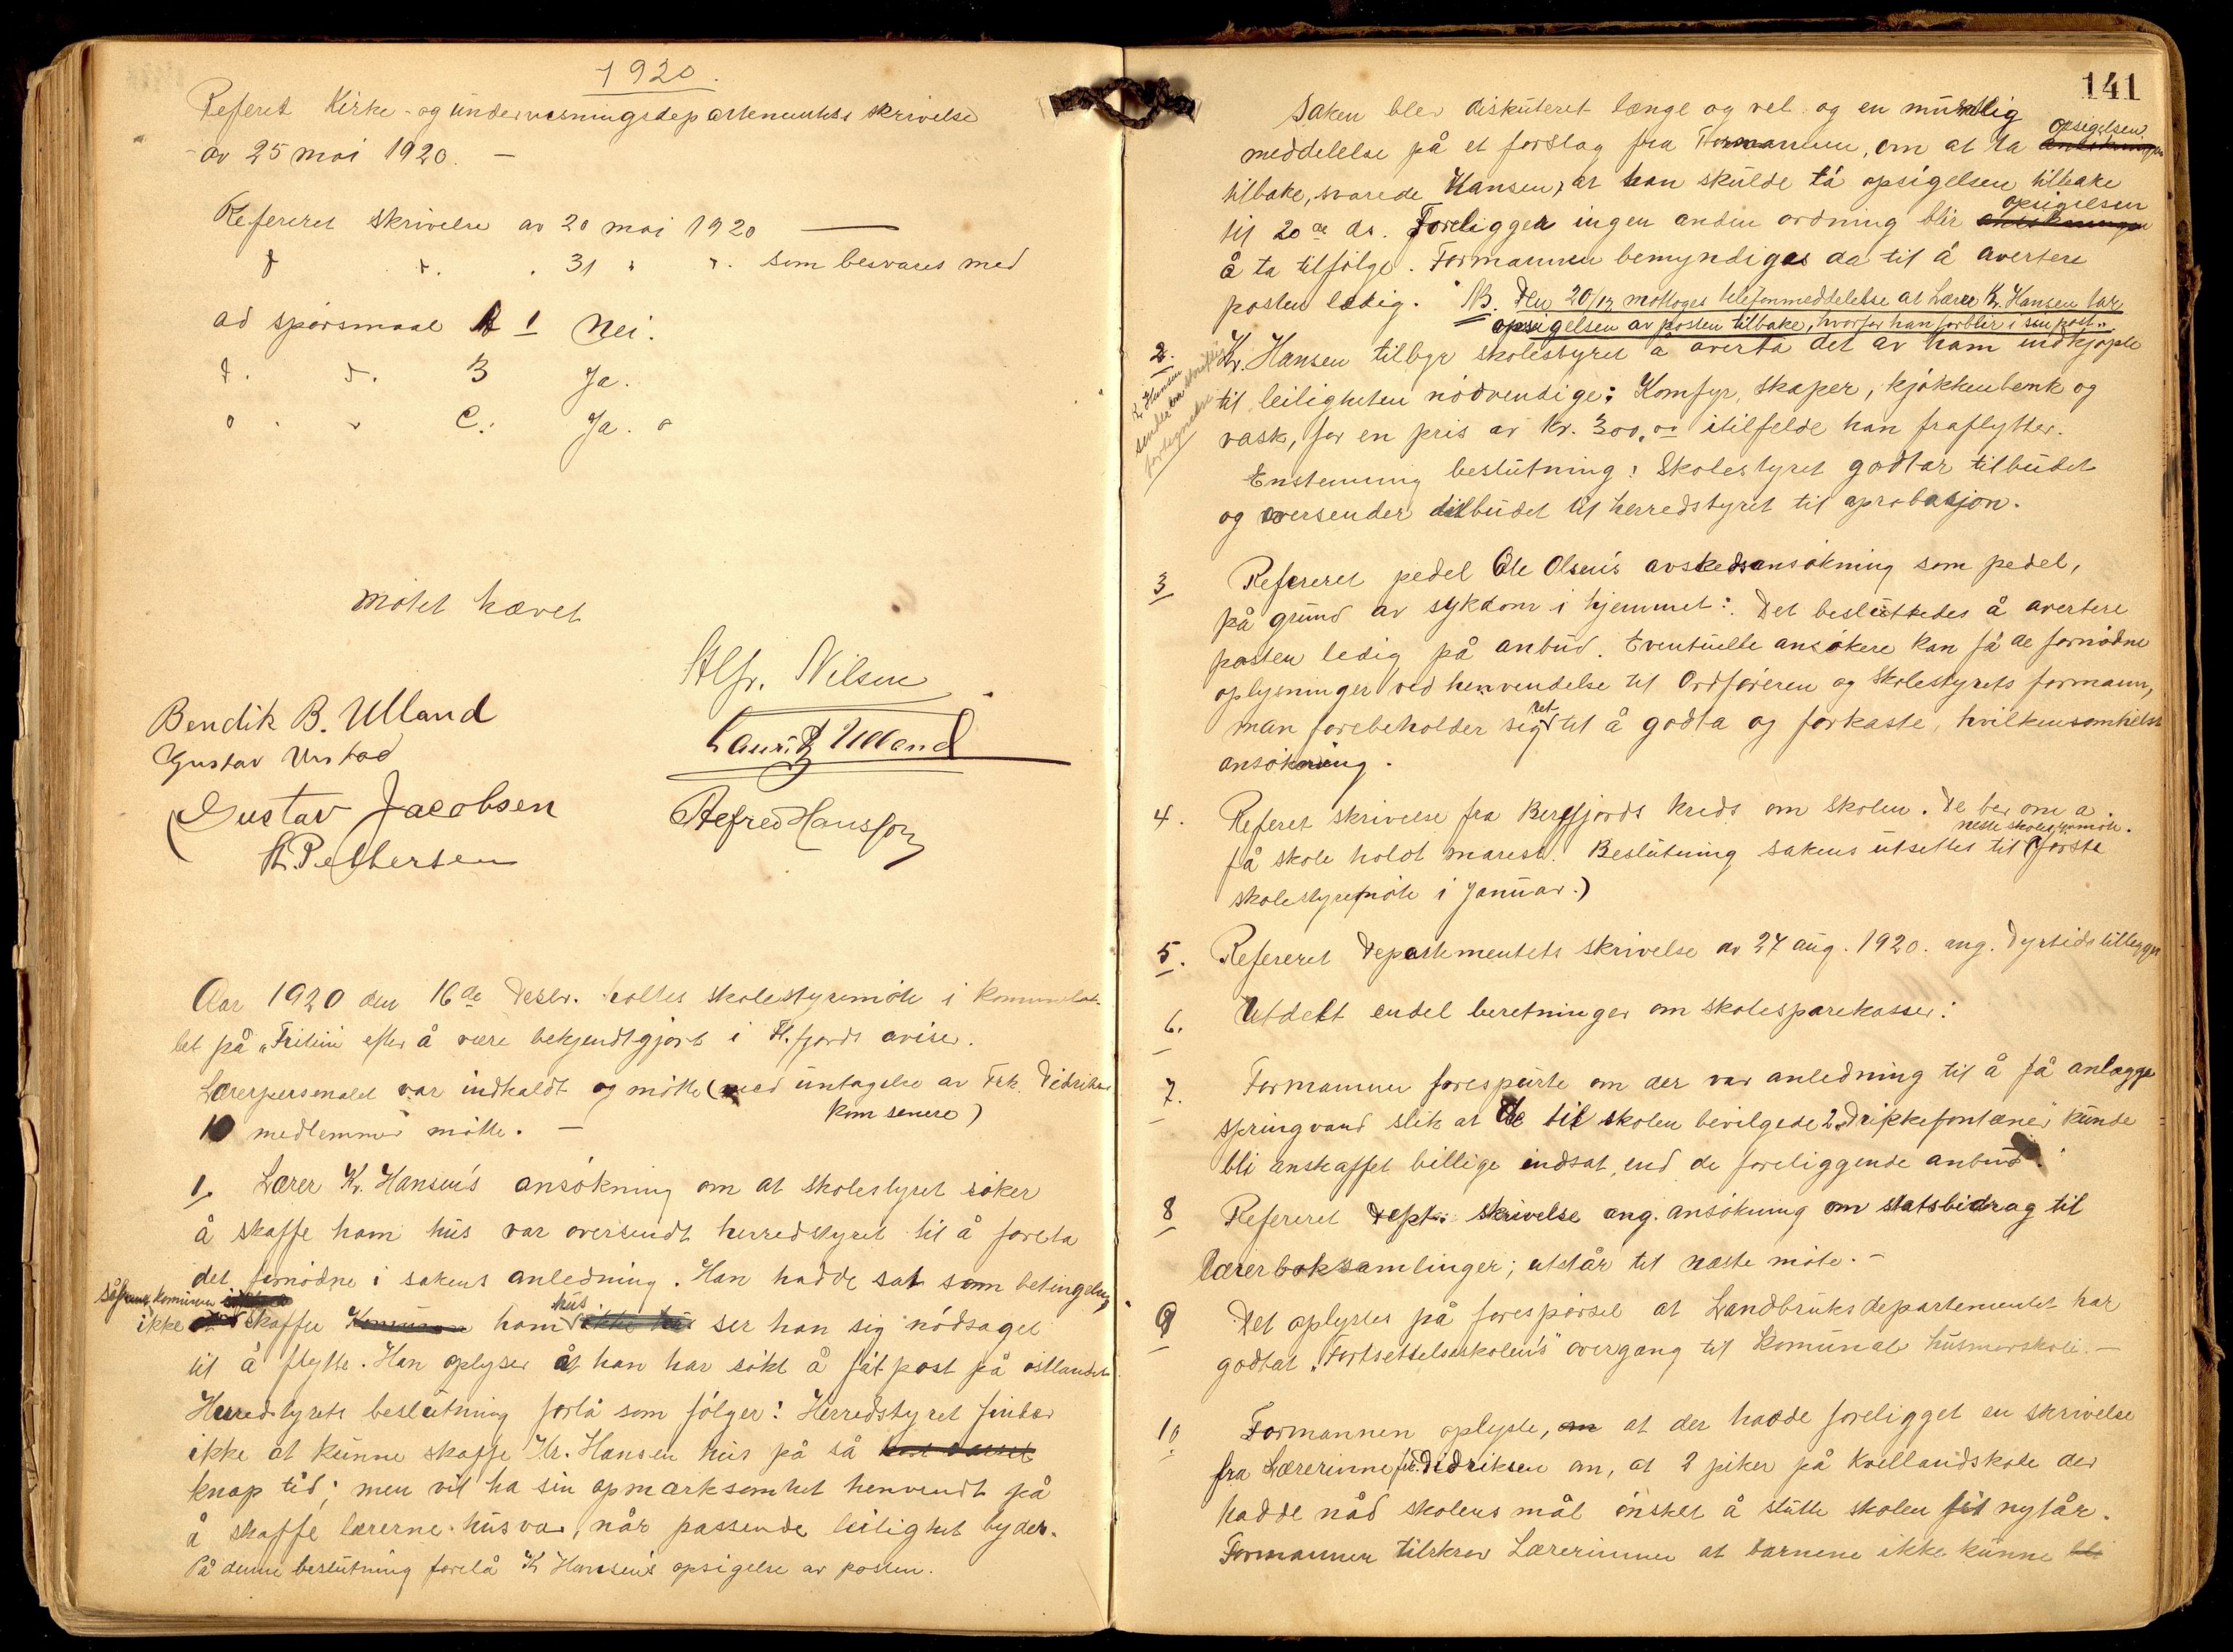 1920.
Referet Kirke- og undervisningsdepartementets skrivelse
av 25 mai 1920. —
Refereret skrivelse av 20 mai 1920 —
d d. . 31 " ". som besvares med
ad spörsmaal A 1 Nei.
d. d. B Ja.
" . " C. Ja. "
Mötet hævet
Alfr. Nilsen
Bendik B. Ulland
Lauritz Ulland
Gustav Urstad
Gustav Jacobsen
Alfred Hansen
H. Pettersen
Aar 1920 den 16de Desbr. holtes skolestyremöte i Kommunelokalet
på „Fritun" efter å være bekjendtgjort i Fl.fjords aviser.
Lærerpersonalet var indkaldt og mötte (med untagelse av Frk. Didriksen
kom senere)
10 medlemmer mötte. —
1. Lærer K. Hansen's ansökning om at skolestyret söker
å skaffe ham hus var oversendt herredstyret til å foreta
det fornödne i sakens anledning. Han hadde sat som betingelse,
såfremt komunen
ikke skaffer Komunen ham hus ikke hus ser han sig nödsaget
til å flytte. Han oplyser at han har sökt å fåt post på östlandet
Herredstyrets beslutning forlå som fölger: Herredstyret finder
ikke at kunne skaffe Kr. Hansen hus på så
knap tid; men vil ha sin opmærksomhet henvendt på
å skaffe lærerne husvær, når passende leilighet byder.
På denne beslutning forelå K Hansen's opsigelse av posten.
141
Saken blev diskuteret længe og vel og en muntlig
opsigelsen
meddelelse på et forslag fra Formannen, om at ta ansökningen
tilbake, svarede Hansen, at han skulde ta opsigelsen tilbake
opsigelsen
til 20de ds. Foreligger ingen anden ordning blir ansökningen
å ta tilfölge. Formannen bemyndiges da til å avertere
posten ledig. NB. Den 20/12 mottoges telefonmeddelelse at Lærer K. Hansen tar
opsigelsen av posten tilbake, hvorfor han forblir i sin post."
2. Kr. Hansen tilbyr skolestyret å overta det av ham indkjöpte
K. Hansen
sender en skriftlig
fortegnelse
til leiligheten nödvendige: Komfyr, skaper, kjökkenbenk og
vask, for en pris av Kr. 300,00 itilfelde han fraflytter.
Enstemmig beslutning: Skolestyret godtar tilbudet
og oversender tilbudet til herredstyret til aprobasjon.
3 Refereret pedel Ole Olsen's avskedsansökning som pedel,
på grund av sykdom i hjemmet: Det besluttedes å avertere
posten ledig på anbud. Eventuelle ansökere kan få de fornödne
oplysninger ved henvendelse til Ordföreren og Skolestyrets formann,
man forebeholder sig ret til å godta og forkaste, hvilkensomhelst
ansökning.
4. Referet skrivelse fra Bergfjords kreds om skolen. De ber om å
neste skolestyremöte.
få skole holdt marest. Beslutning sakens utsettes til (förste
skolestyremöte i Januar.)
5. Refereret Departementets skrivelse av 27 aug. 1920. ang. Dyrtidstillegget
6. Utdelt endel beretninger om skolesparekasser.
7. Formannen forespurte om der var anledning til å få anlægge
springvand slik at de til skolen bevilgede 2 „Drikkefontæner" kunde
bli anskaffet billige indsat, end de foreliggende anbud.
8 Refereret Dept.s skrivelse ang. ansökning om statsbidrag til
lærerboksamlinger; utstår til næste möte. —
9 Det oplystes på forespörsel at Landbruksdepartementet har
godtat „Fortsettelsesskolen's" overgang til komunal husmorskole. —
10 Formannen oplyste, om at der hadde foreligget en skrivelse
fra Lærerinne frk. Didriksen om, at 2 piker på Kvellandskole der
hadde nåd skolens mål önsket å slutte skolen til nytår.
Formannen tilskrev Lærerinnen at barnene ikke kunne bli